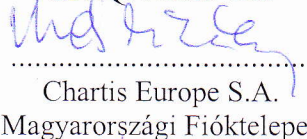 Chartis Europe S.A.
Magyarországi Fióktelepe